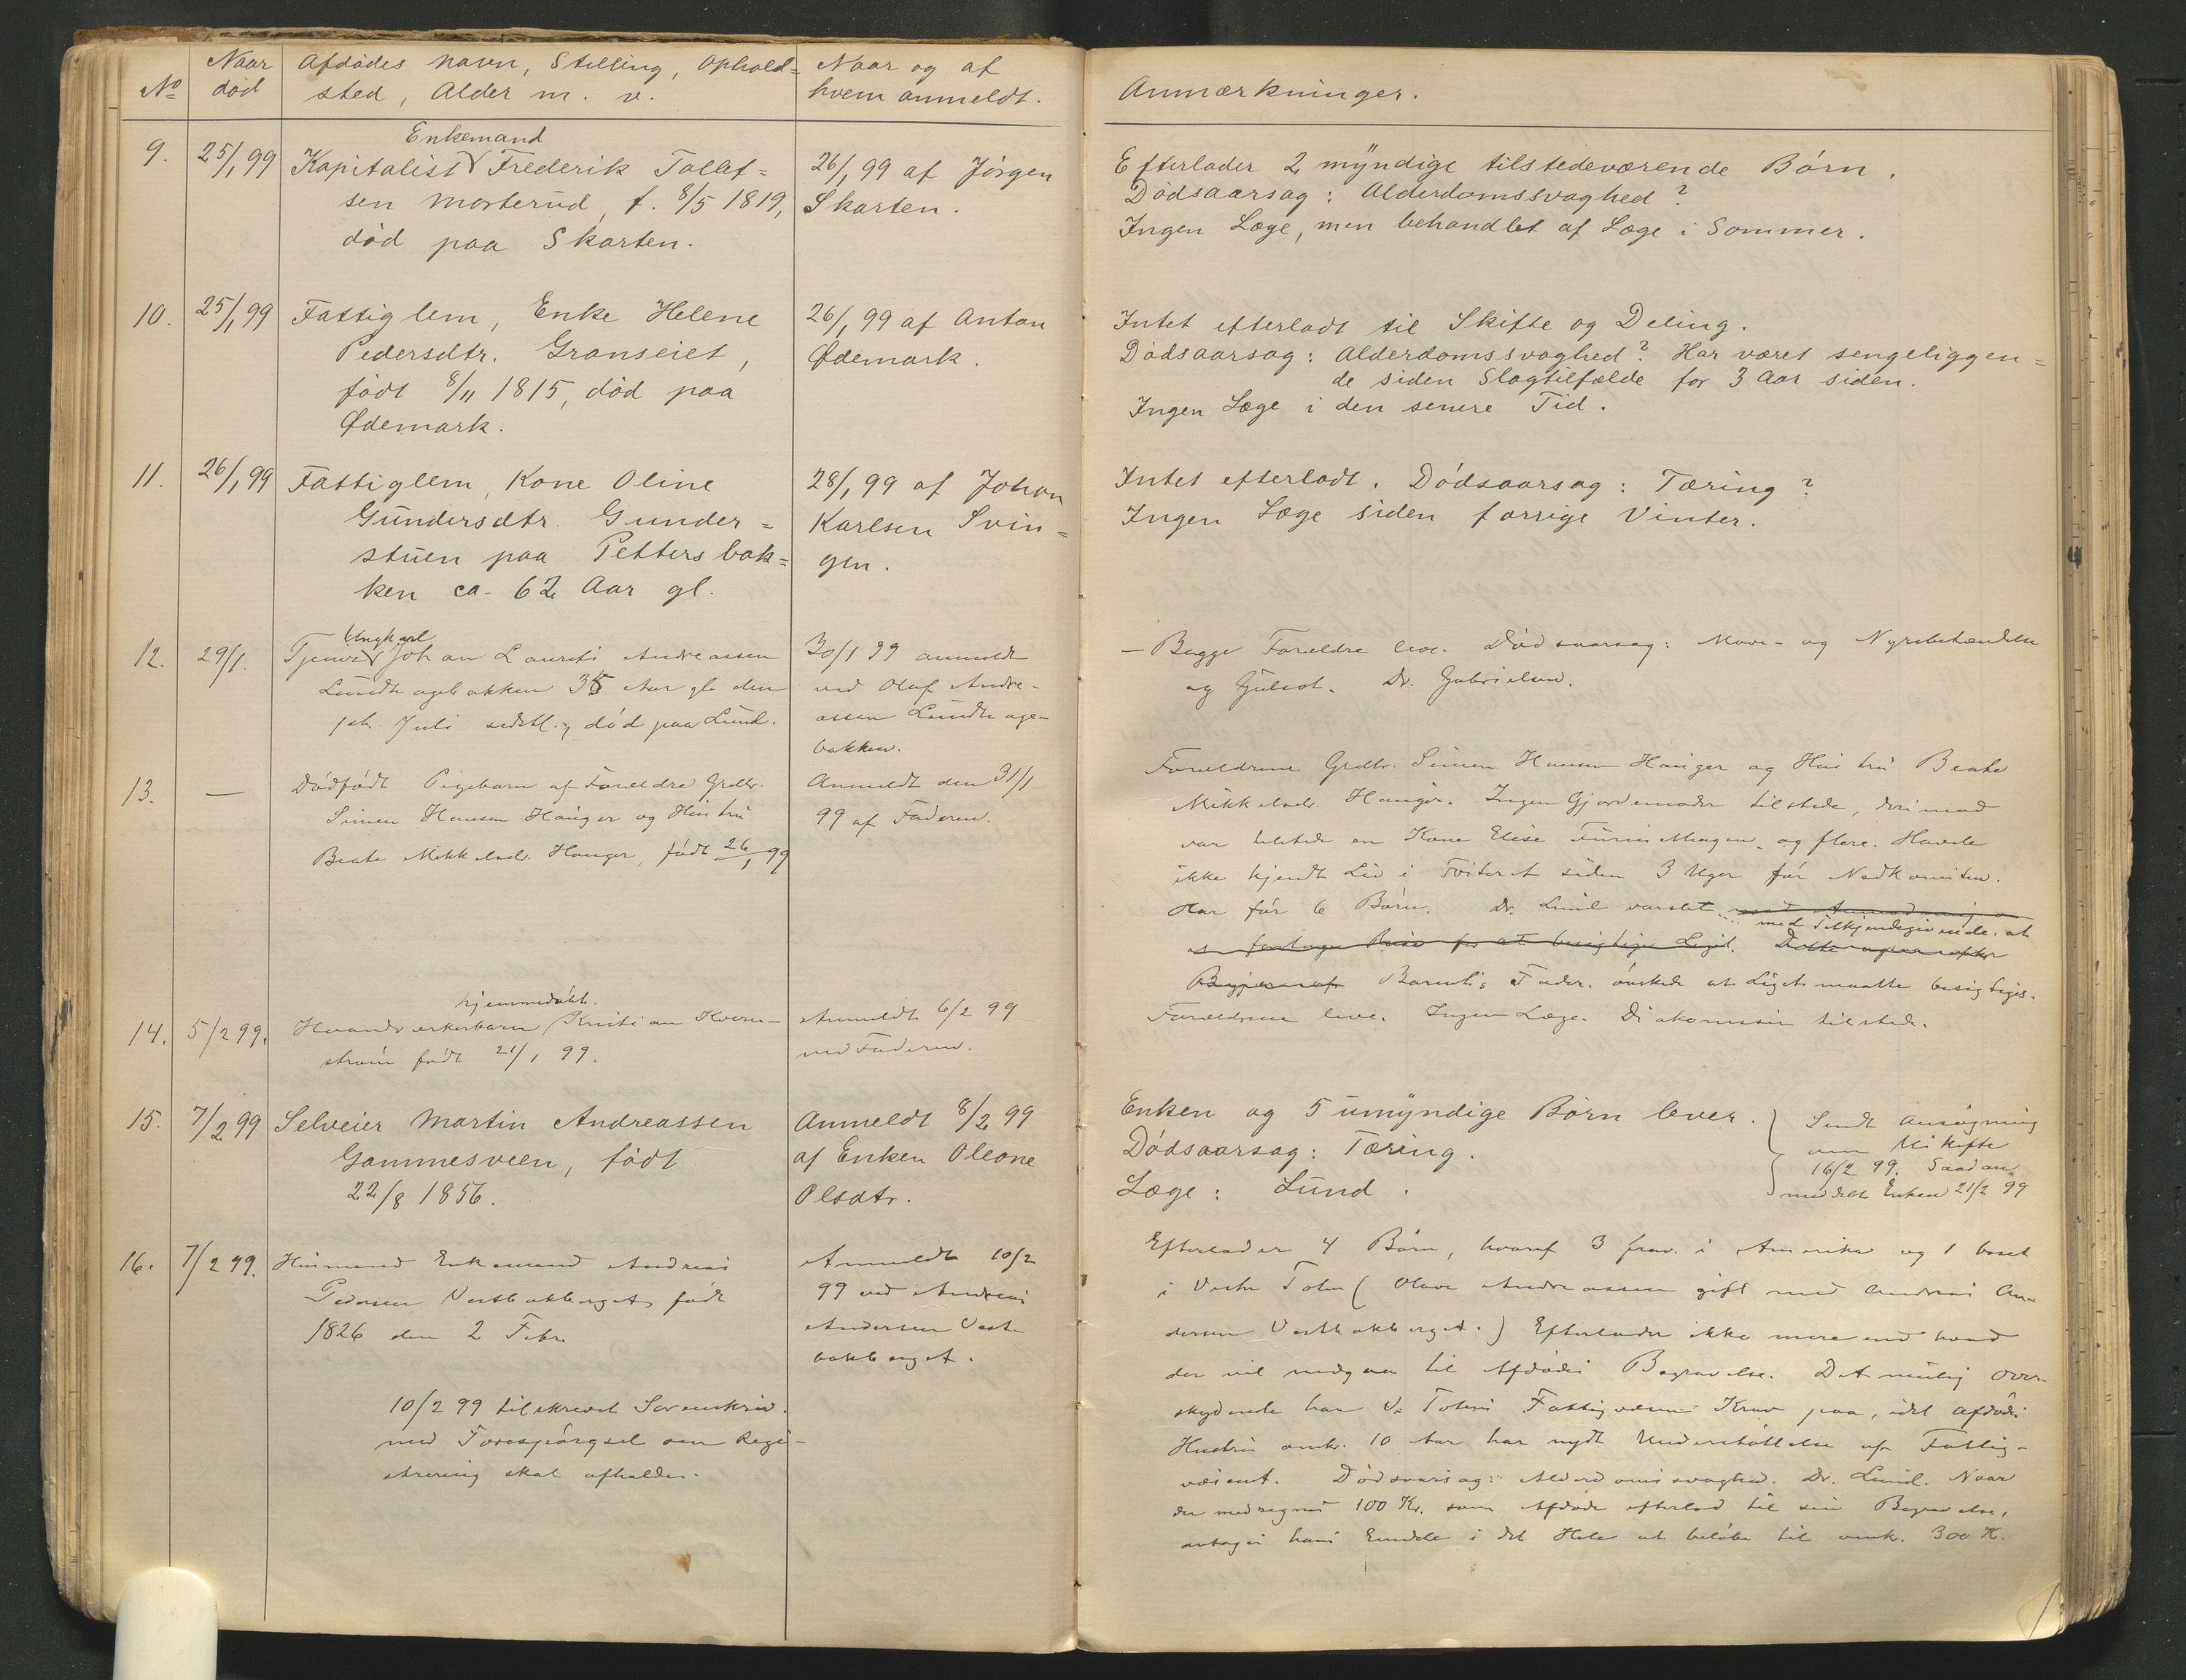 No
Naar død
Afdødes navn, Stilling, Ophold=
sted, Alder m. v.
Naar og af
hvem anmeldt.
Anmærkninger.
9.
25/1 99
Enkemand
Kapitalist Frederik Tollef=
sen Morterud, f. 8/5 1819,
død paa Skarten.
26/1 99 af Jörgen
Skarten.
Efterlader 2 myndige tilstedeværende Börn.
Dödsaarsag: Alderdomssvaghed?
Ingen Læge, men behandlet af Læge i Sommer.
10.
25/1 99
Fattiglem, Enke Helene
Pedersdtr. Granseiet,
født 8/11 1815, død paa
Ødemark.
26/1 99 af Anton
Ødemark.
Intet efterladt til Skifte og Deling.
Dödsaarsag: Alderdomssvaghed? Har været sengeliggen=
de siden Slagtilfælde for 3 Aar siden.
Ingen Læge i den senere Tid.
11.
26/1 99
Fattiglem, Kone Oline
Gundersdtr. Gunder=
stuen paa Pettersbak=
ken ca. 62 Aar gl.
28/1 99 af Johan
Karlsen Svin=
gen.
Intet efterladt. Dödsaarsag: Tæring?
Ingen Læge siden forrige Vinter.
12.
29/1.
Ungkarl
Tjener Johan Laurits Andreassen
Lundhagebakken 35 Aar gl. den
Juli sidstl., død paa Lund.
30/1 99 anmeldt
ved Olaf Andre-
assen Lundhage-
bakken.
- Begge Forældre leve. Dödsaarsag: Mave- og Nyrebetændelse
og Gulsot. Dr. Gabrielsen.
13.
—
Dödfödt Pigebarn af Forældre Grdbr.
Simen Hansen Hauger og Hustru
Beate Mikkelsdr. Hauger, født 26/1 99
Anmeldt den 31/1
99 af Faderen.
Forældrene Grdbr. Simen Hansen Hauger og Hustru Beate
Mikkelsdr. Hauger. Ingen Gjordemoder tilstede, derimod
var tilstede en Kone Elise og flere. Havde
ikke kjendt Liv i Fosteret siden 3 Uger för Nedkomsten.
Har för 6 Börn. Dr. Lund varslet med Anmodning om
med Tilkjendegivende, at
at foretage Reise for at besigtige Liget.
Barnets Fader önskede at Liget maatte besigtiges.
14.
5/2 99.
hjemmedöbt.
Haandværkerbarn Kristian Kvern-
ström født 21/1 99.
Anmeldt 6/2 99
ved Faderen.
Forældrene leve. Ingen Læge. Diakonisse tilstede.
15.
7/2 99
Selveier Martin Andreassen
Gammesveen, født
22/8 1856.
Anmeldt 8/2 99
af Enken Oleane
Olsdtr.
Enken og 5 umyndige Börn lever.
Dödsaarsag: Tæring.
Læge: Lund.
Sendt Ansögning
om Uskifte
16/2 99. Saadan
meddelt Enken 21/2 99
16.
7/2 99.
Husmand Enkemand Andreas
Pedersen Vestbakberget født
1826 den 2 Febr.
10/2 99 tilskrevet Sorenskriv.
med Forespörgsel om Regi-
strering skal afholdes.
Anmeldt 10/2
99 ved Andreas
Andersen Vest-
bakberget.
Efterlader 4 Börn, hvoraf 3 frav. i Amerika og 1 bosat
i Vestre Toten (Olava Andreassen gift med Andreas An-
dersen Vestbakberget.) Efterlader ikke mere end hvad
der vil medgaa til Afdødes Begravelse. Det mulig over-
skydende har V. Totens Fattigvæsen Krav paa, idet Afdødes
Hustru omkr. 10 Aar har nydt Understöttelse af Fattig-
væsenet. Dödsaarsag: Alderdomssvaghed. Dr. Lund. Naar
der medregnes 100 Kr. som Afdøde efterlod til sin Begravelse,
antages hans Eiendele i det Hele at belöbe til omk. 300 K.